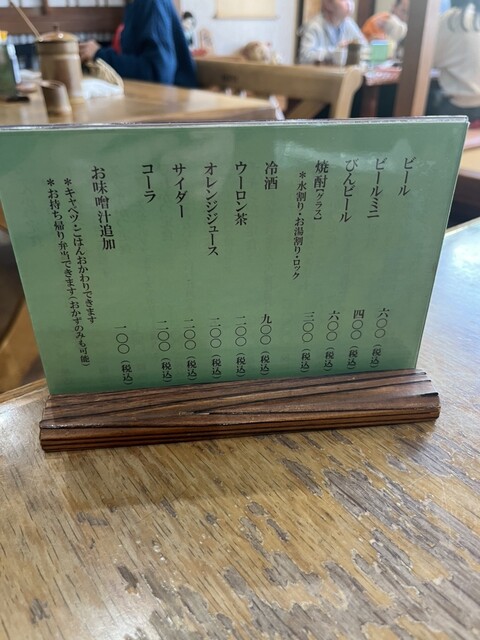 ビール 六〇〇(税込)
ビールミニ 四〇〇(税込)
びんビール 六〇〇(税込)
焼酎【グラス】 三〇〇(税込)
*水割り・お湯割り・ロック
冷酒 九〇〇(税込)
ウーロン茶 二〇〇(税込)
オレンジジュース 二〇〇(税込)
サイダー 二〇〇(税込)
コーラ 二〇〇(税込)
お味噌汁追加 一〇〇(税込)
*キャベツ・ごはんおかわりできます
*お持ち帰り弁当できます(おかずのみも可能)